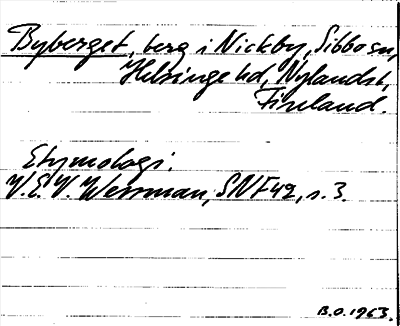 Byberget, berg i Nickby, Sibbo sn,
Helsinge hd, Nylands l.,
Finland.
Etymologi.
V.E.V. Wessman, SNF 42, s. 3.
B.O. 1963.